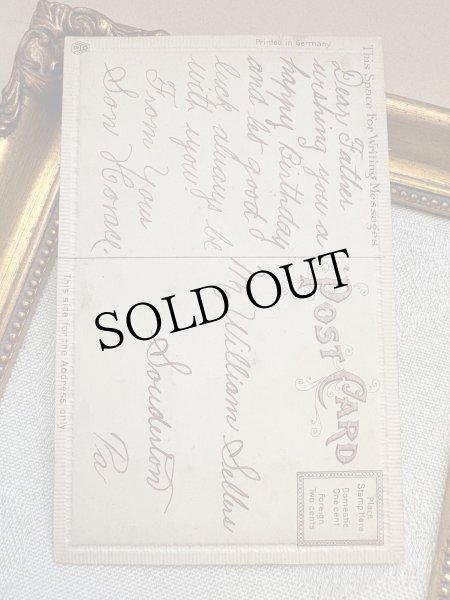 Printed in Germany
This Space For Writing Messages
Dear Father
wishing you a
happy Birthday
and let good
luck always be
with you
From your
Son Horace.
POST CARD
Place
Stamp Here
Domestic
One cent
Foreign
Two cents
Mr William Sellers
Souderton
Pa
This side for the Address only
SOLD OUT